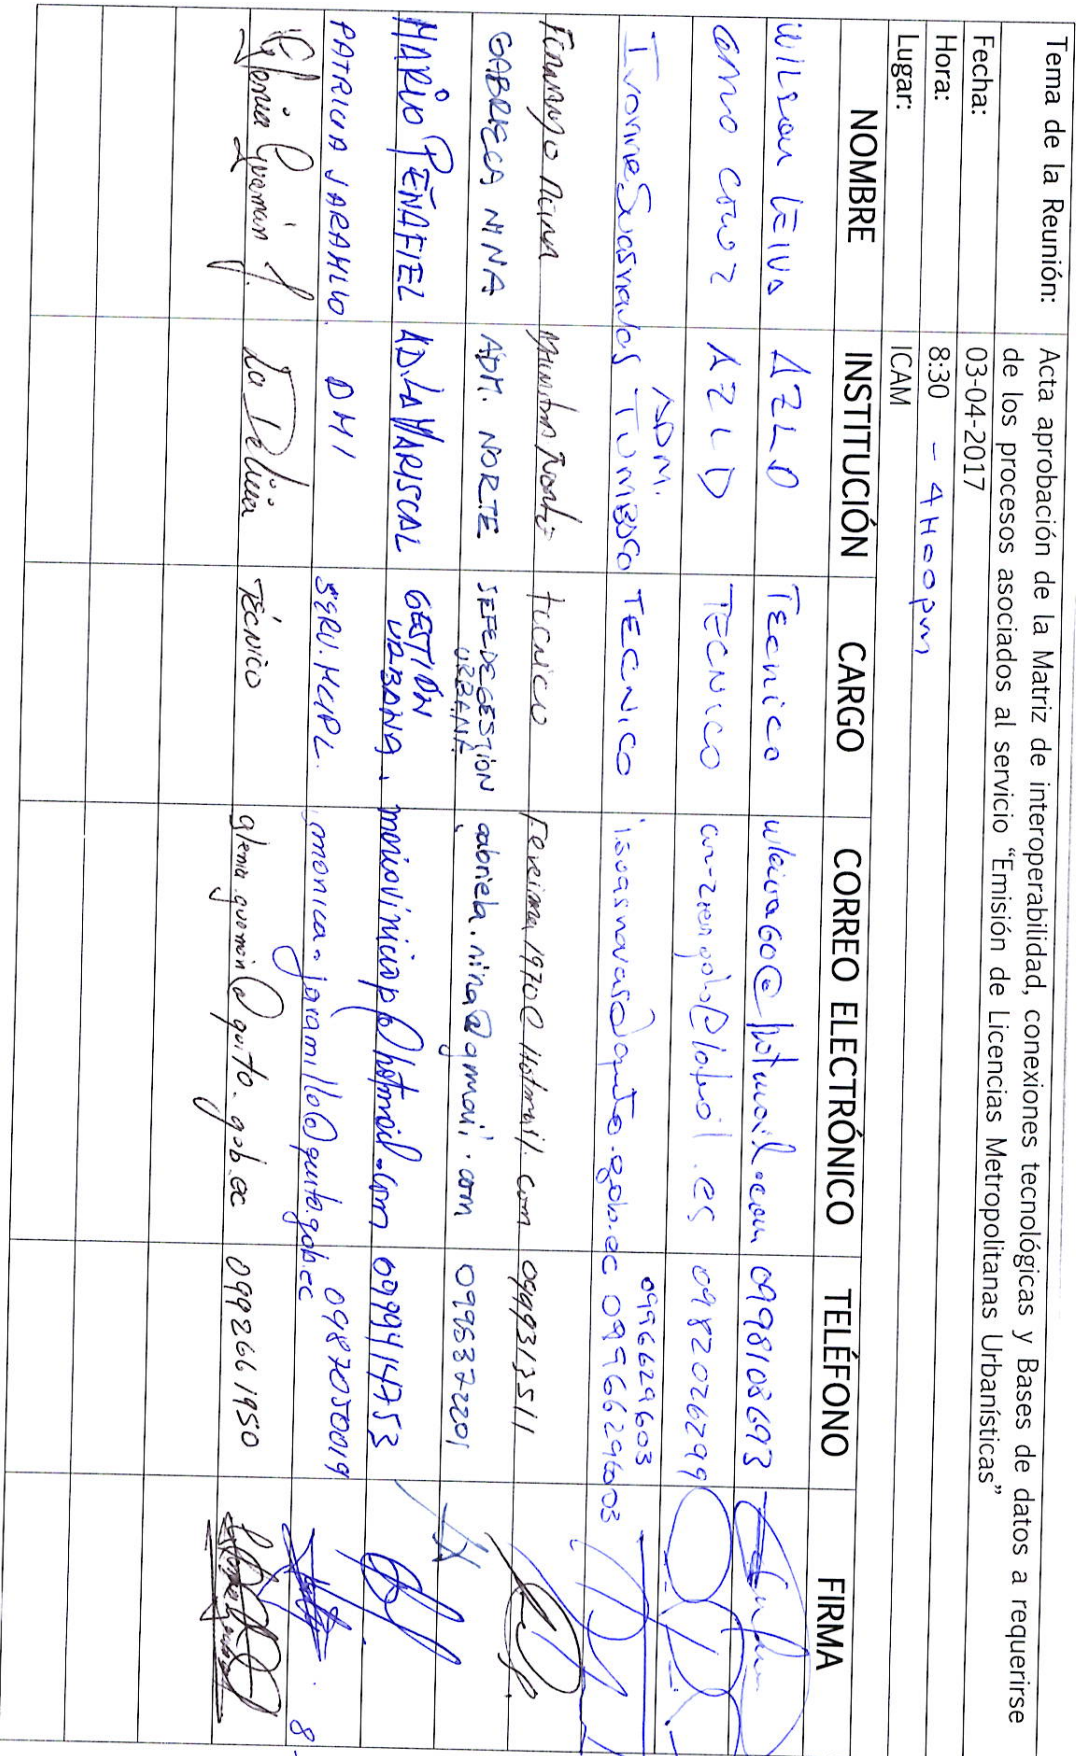 Tema de la Reunión: Acta aprobación de la Matriz de interoperabilidad, conexiones tecnológicas y Bases de datos a requerirse
de los procesos asociados al servicio “Emisión de Licencias Metropolitanas Urbanísticas”
Fecha: 03-04-2017
Hora: 8:30 - 4H00pm
Lugar: ICAM
NOMBRE INSTITUCIÓN CARGO CORREO ELECTRÓNICO TELÉFONO FIRMA
Wilson Leiva AZLD Tecnico wleiva60@hotmail.com 0998108693
AZLD TECNICO 0982026299
ADM. 0996629603
Ivonne Suasnavas TUMBACO TECNICO i.suasnavas@quito.gob.ec 0996629603
Tecnico Fereima1970@Hotmail.com 0999313511
GABRIELA NINA ADM. NORTE JEFE DE GESTION URBANA gabriela.nina@gmail.com 0995372201
MARIO PEÑAFIEL AD. LA MARISCAL GESTIÓN URBANA. marioviniciop@hotmail.com 0999414753
PATRICIA JARAMILLO. DMI SERV. MCIPL. monica.jaramillo@quito.gob.ec 0987050019
Glenia Guamán J. La Delicia TÉCNICO glenia.guaman@quito.gob.ec 0992661950
8